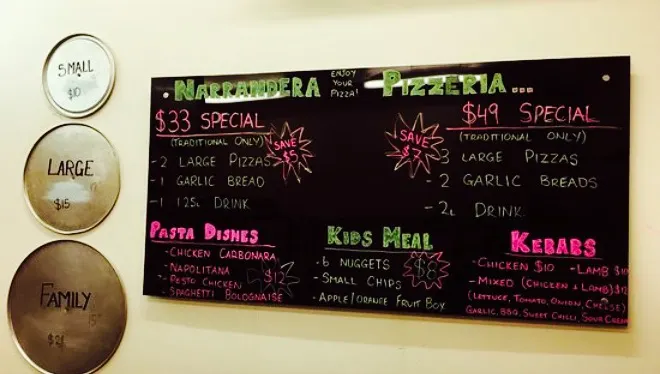 SMALL
$10
LARGE
$15
FAMILY
15"
NARRANDERA ENJOY YOUR PIZZA! PIZZERIA...
$33 SPECIAL
(TRADITIONAL ONLY)
SAVE $5
- 2 LARGE PIZZAS
- 1 GARLIC BREAD
- 1 1.25L DRINK
$49 SPECIAL
(TRADITIONAL ONLY)
SAVE $7
3 LARGE PIZZAS
- 2 GARLIC BREADS
- 2L DRINK
PASTA DISHES
- CHICKEN CARBONARA
- NAPOLITANA
- PESTO CHICKEN
- SPAGHETTI BOLOGNAISE
$12
KIDS MEAL
- 6 NUGGETS
- SMALL CHIPS
- APPLE/ORANGE FRUIT BOX
$8
KEBABS
- CHICKEN $10 - LAMB $10
- MIXED (CHICKEN & LAMB) $12
(LETTUCE, TOMATO, ONION, CHEESE)
GARLIC, BBQ, SWEET CHILLI, SOUR CREAM